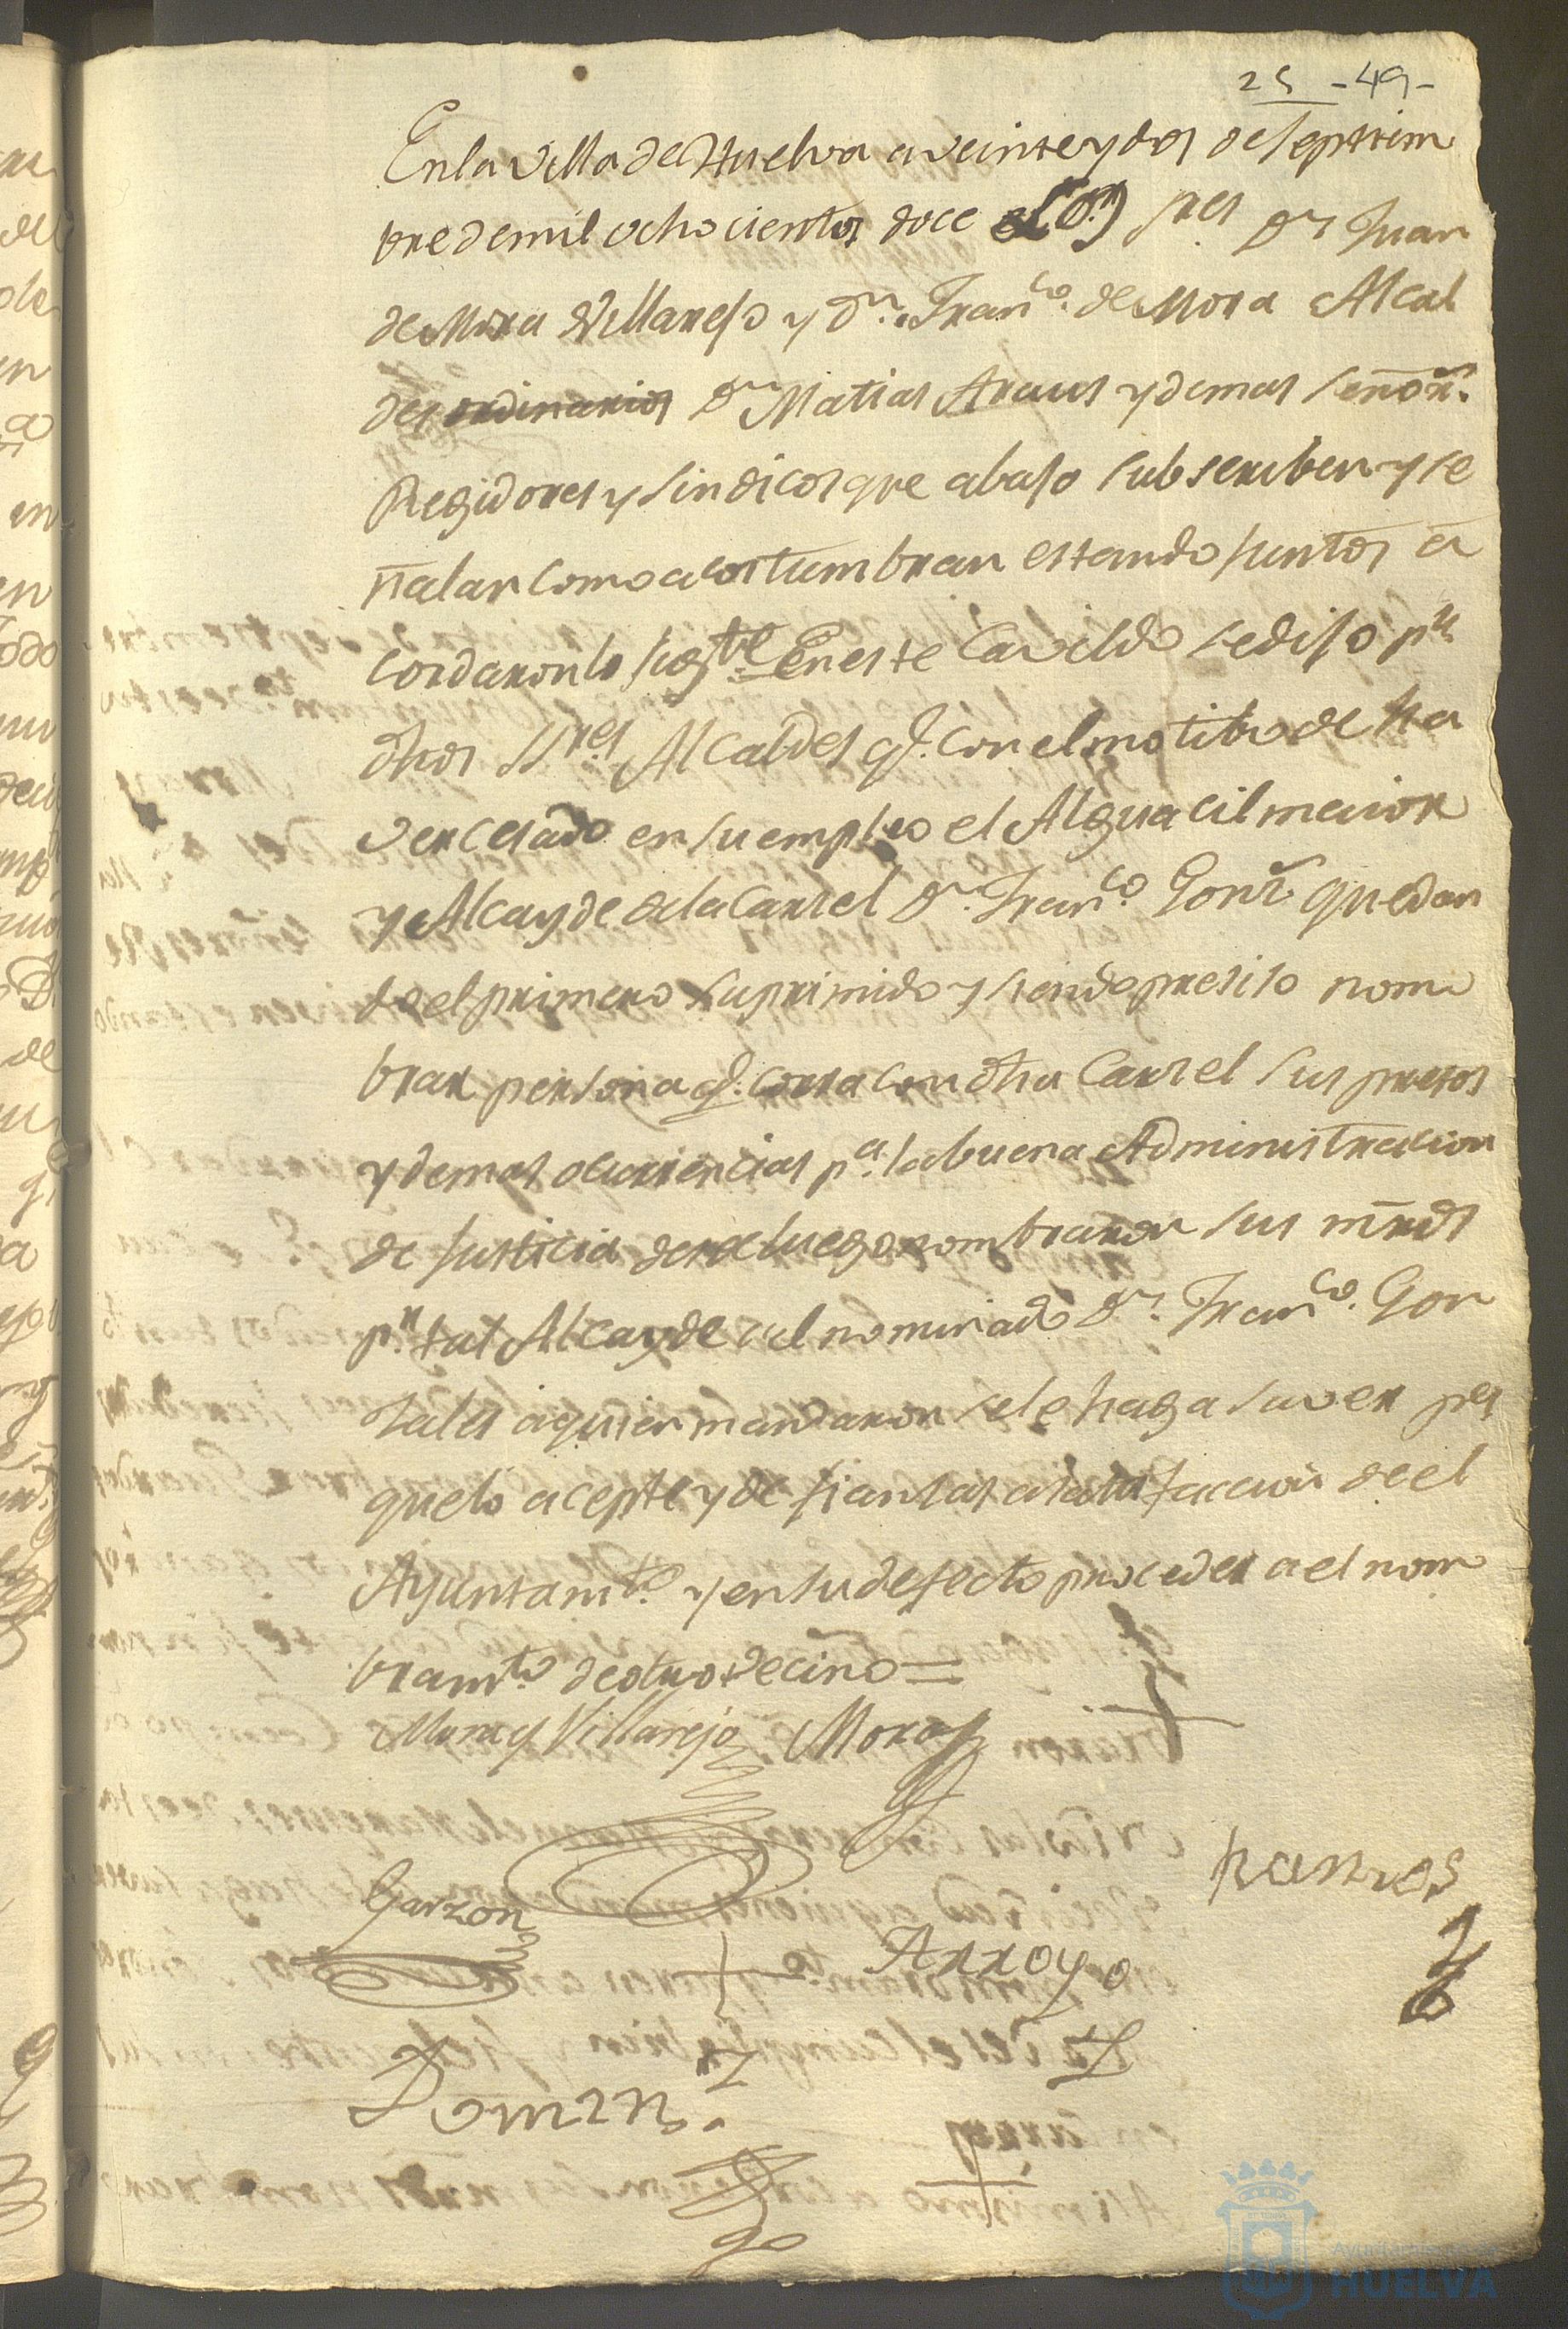 25 -49-
En la Villa de Huelva a veinte y dos de septtiem
bre de mil ochocientos doce los sres Dn Juan
de Mora Villarejo y Dn. Franco. de Mora Alcal
des ordinarios Dn Matias Araus y demas señors.
Regidores y sindicos que abajo subscriben y se
ñalan como acostumbran estando juntos a
cordaron lo sigte En este Cavildo se dijo pr.
dhos SSres Alcaldes q. con el motivo de ha
ver cesado en su empleo el Alguacil maior
y Alcayde de la Carsel Dn. Franco Gonz quedan
do el primero suprimido y siendo presiso nom
brar persona q. corra con dha Carsel sus presos
y demas ocurrencias pa. la buena Administracion
de Justicia desde luego nombraron sus mrds
pr. tal Alcayde a el nominado Dn. Franco. Gon
sales a quien mandaron se le haga saver pa
que lo acepte y de fiansas a satisfaccion de el
Ayuntamto. y en su defecto proceder a el nom
bramto de otro vecino =
Mora y Villarejo Mora
Garzon
Arroyo
Ramos
Domingz.
Ayuntamiento de
HUELVA